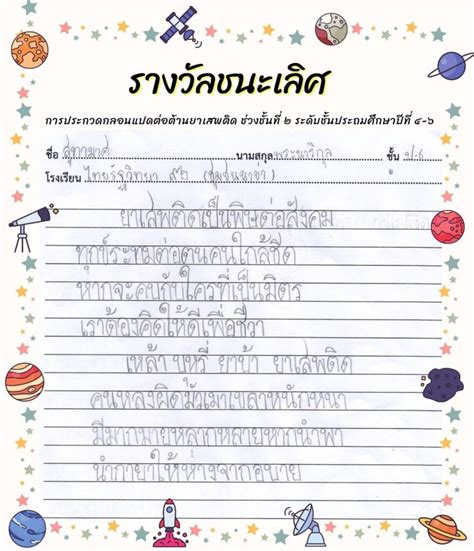 รางวัลชนะเลิศ
การประกวดกลอนแปดต่อต้านยาเสพติด ช่วงชั้นที่ ๒ ระดับชั้นประถมศึกษาปีที่ ๔-๖
ชื่อ สุทามาศ นามสกุล พระนาวิกุล ชั้น ป.6
โรงเรียน ไทยรัฐวิทยา ๙๒
ยาเสพติดเป็นพิษต่อสังคม
ทุกข์ระทมต่อตนคนใกล้ชิด
หากจะคบกับใครที่เป็นมิตร
เราต้องคิดให้ดีเพื่อชีวา
เหล้า บุหรี่ ยาบ้า ยาเสพติด
คนหลงผิดมัวเมาเบลาหนักหนา
มีมากมายหลากหลายหากนำพา
นำกายาให้ห่างจากอบาย